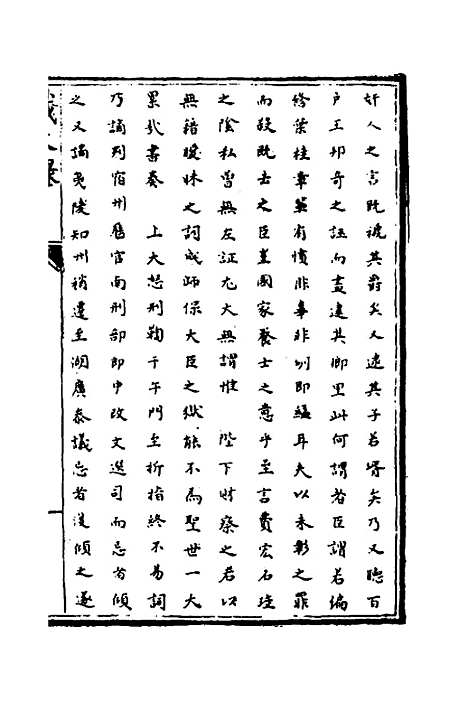 奸人之言既褫其爵矣又逮其子若壻矣乃又聽百
户王邦奇之誣而盡逮其鄉里此何謂者臣謂若編
修葉桂章等有憤非辜非刎即縊耳夫以未彰之罪
而殺既士之臣豈國家養士之意乎至言費宏石珤
之陰私曾無左証尤大無謂惟　陛下財察之若以
無籍曖昧之詞成師保大臣之獄能不為聖世一大
累哉書奏　上大怒刑鞫于午門至折指終不易詞
乃謫判宿州歷官南刑部郎中改文選司而忌者傾
之又謫夷陵知州稍遷至湖廣參議忌者復傾之遂